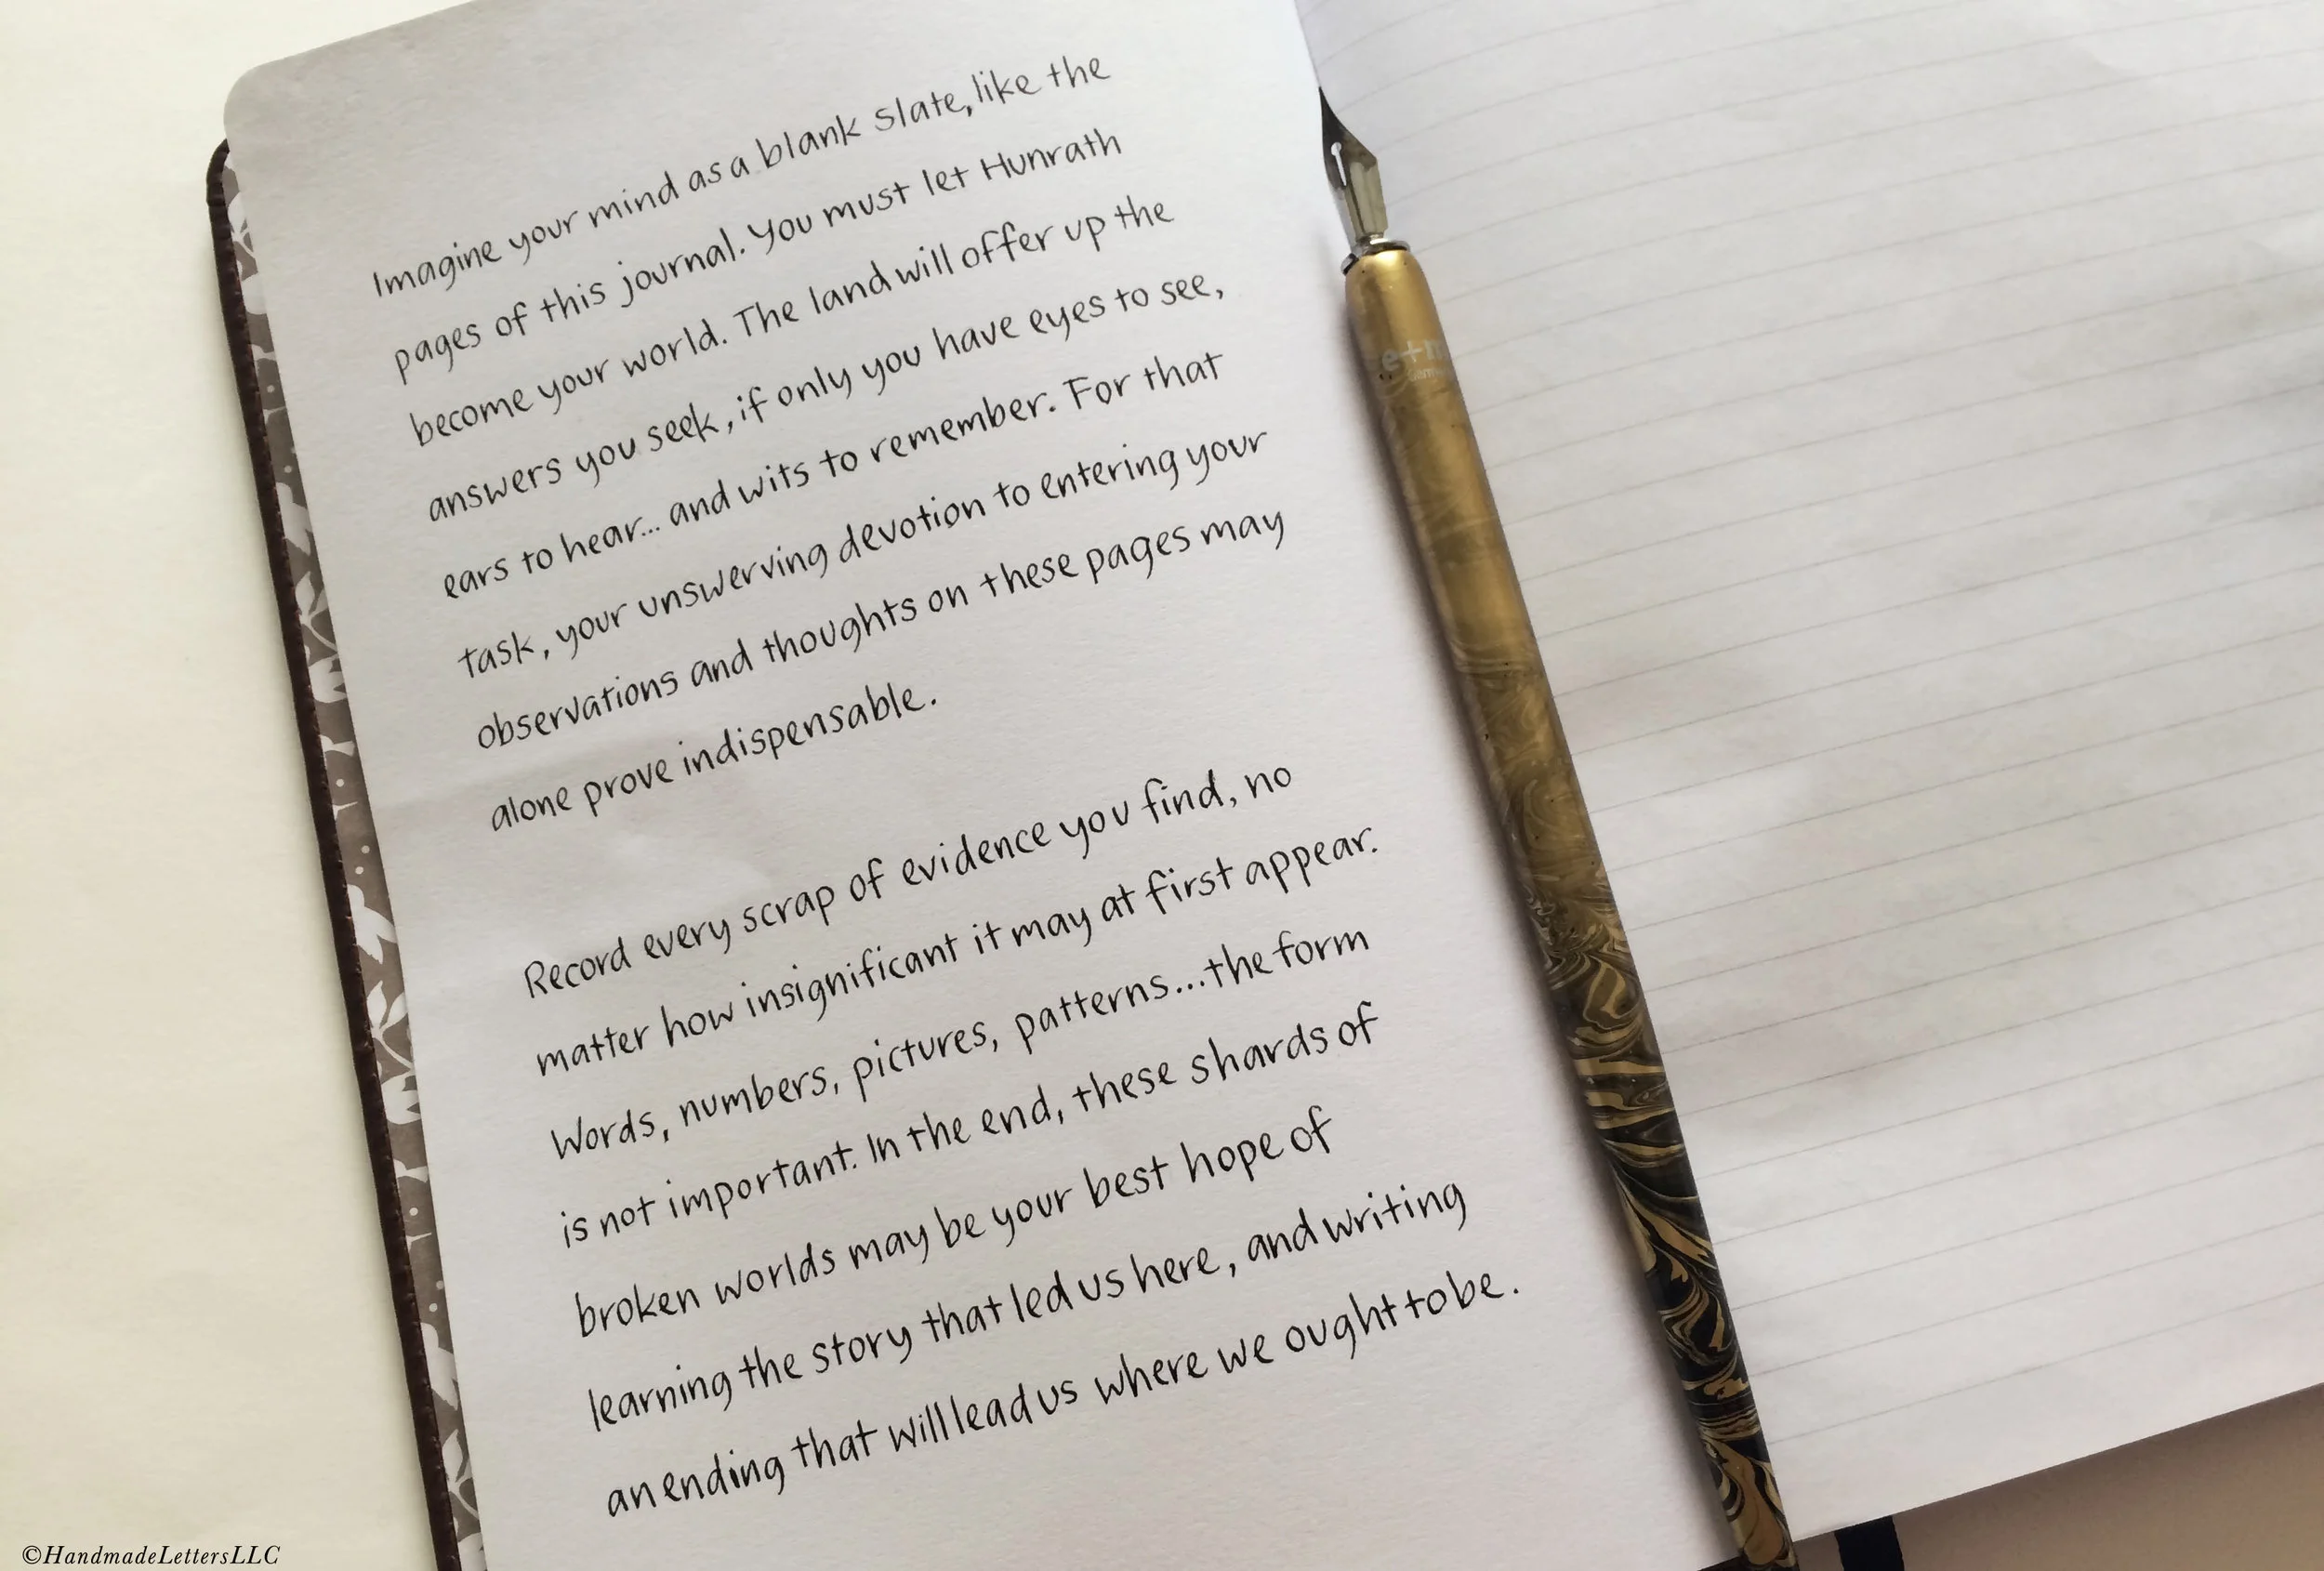 Imagine your mind as a blank slate, like the
pages of this journal. You must let Hunrath
become your world. The land will offer up the
answers you seek, if only you have eyes to see,
ears to hear... and wits to remember. For that
task, your unswerving devotion to entering your
observations and thoughts on these pages may
alone prove indispensable.
Record every scrap of evidence you find, no
matter how insignificant it may at first appear.
Words, numbers, pictures, patterns...the form
is not important. In the end, these shards of
broken worlds may be your best hope of
learning the story that led us here, and writing
an ending that will lead us where we ought to be.
e+m
©HandmadeLettersLLC